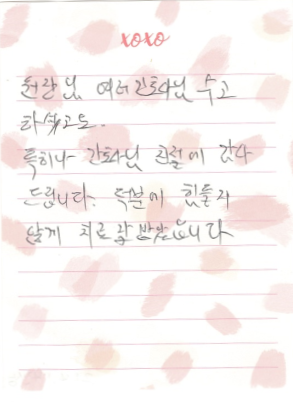 xoxo
원장님, 여러 간호사님 수고
하셨고요.
특히나 간호사님 친절에 감사
드립니다. 덕분에 힘들지
않게 치료 잘 받았습니다